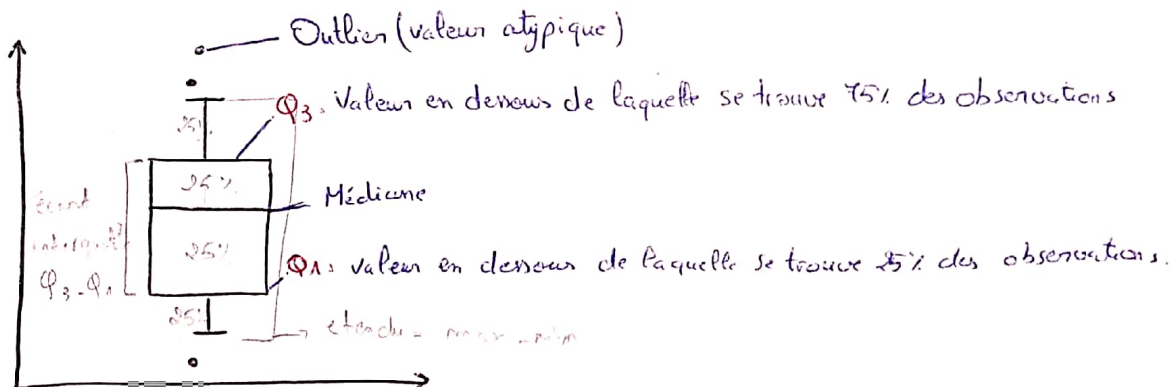 Outlier (valeur atypique)
Q3: Valeur en dessous de laquelle se trouve 75% des observations
25%
25%
Médiane
écart
25%
Q1: valeur en dessous de laquelle se trouve 25% des observations.
Q3-Q1
25%
etendu = max - min